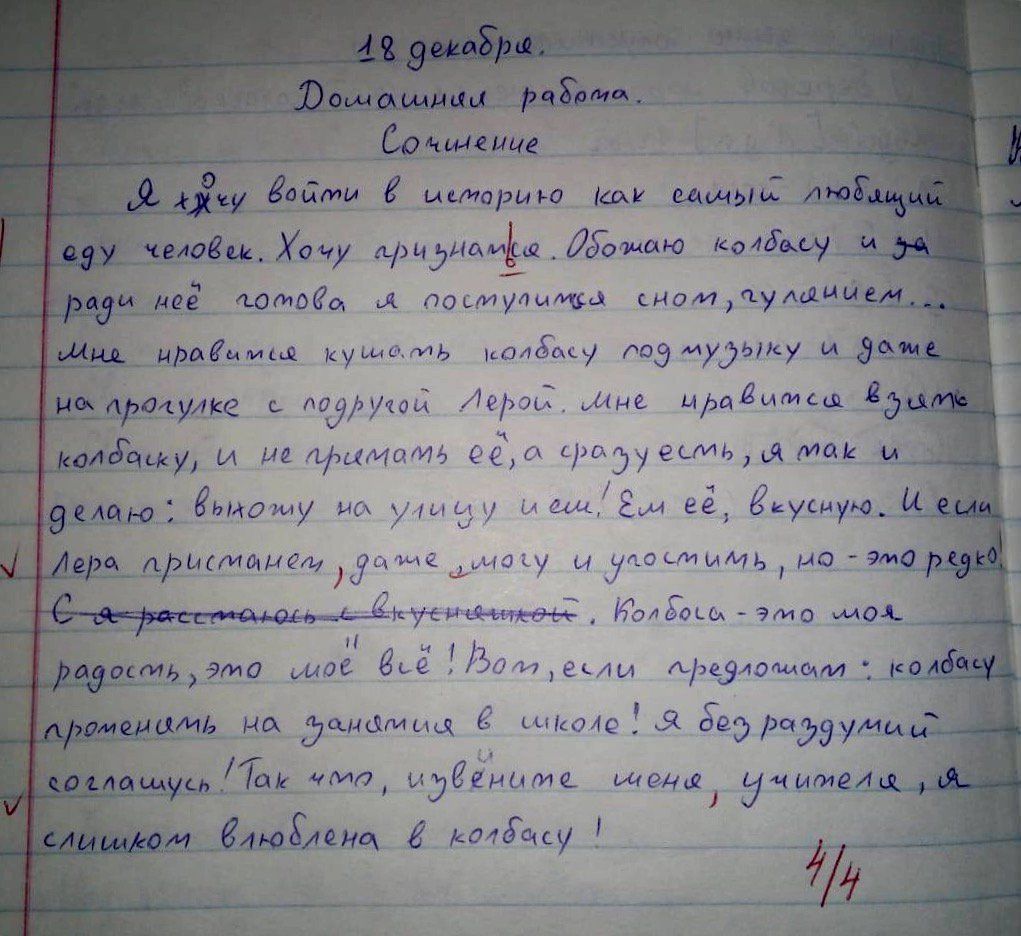 18 декабря.
Домашняя работа.
Сочинение
Я хочу войти в историю как самый любящий
еду человек. Хочу признаться. Обожаю колбасу и за
ради неё готова я поступится сном, гулянием...
Мне нравится кушать колбасу под музыку и даже
на прогулке с подругой Лерой. Мне нравится взять
колбаску, и не прятать её, а сразу есть, я так и
делаю: выхожу на улицу и ем! Ем её, вкусную. И если
Лера пристанет, даже, могу и угостить, но - это редко!
С я расстаюсь с вкусняшкой. Колбаса - это моя
радость, это моё всё! Вот, если предложат: колбасу
променять на занятия в школе! Я без раздумий
соглашусь! Так что, извените меня, учителя, я
слишком влюблена в колбасу!
4/4